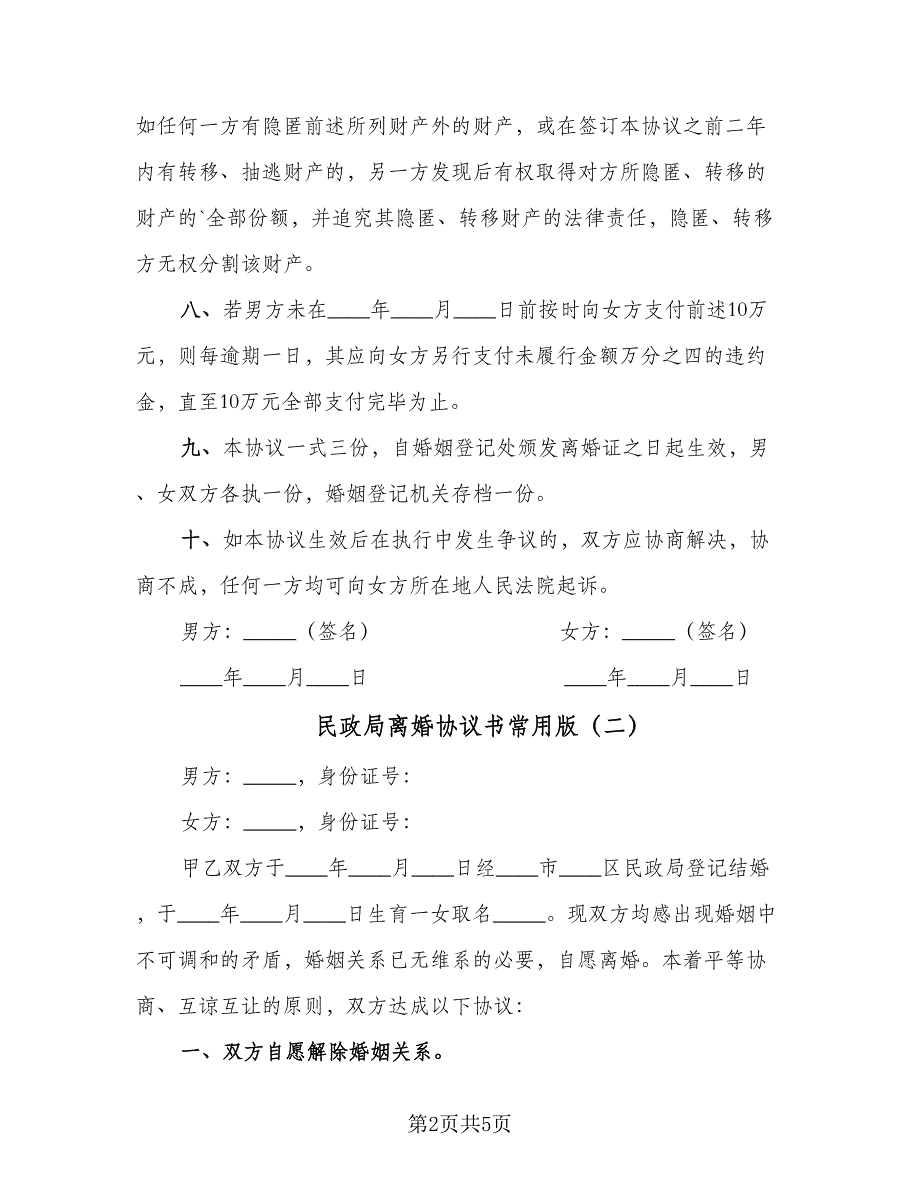 如任何一方有隐匿前述所列财产外的财产，或在签订本协议之前二年
内有转移、抽逃财产的，另一方发现后有权取得对方所隐匿、转移的
财产的`全部份额，并追究其隐匿、转移财产的法律责任，隐匿、转移
方无权分割该财产。
八、若男方未在____年____月____日前按时向女方支付前述10万
元，则每逾期一日，其应向女方另行支付未履行金额万分之四的违约
金，直至10万元全部支付完毕为止。
九、本协议一式三份，自婚姻登记处颁发离婚证之日起生效，男
、女双方各执一份，婚姻登记机关存档一份。
十、如本协议生效后在执行中发生争议的，双方应协商解决，协
商不成，任何一方均可向女方所在地人民法院起诉。
男方：_____（签名） 女方：_____（签名）
____年____月____日 ____年____月____日
民政局离婚协议书常用版（二）
男方：_____，身份证号：
女方：_____，身份证号：
甲乙双方于____年____月____日经____市____区民政局登记结婚
，于____年____月____日生育一女取名_____。现双方均感出现婚姻中
不可调和的矛盾，婚姻关系已无维系的必要，自愿离婚。本着平等协
商、互谅互让的原则，双方达成以下协议：
一、双方自愿解除婚姻关系。
第2页共5页